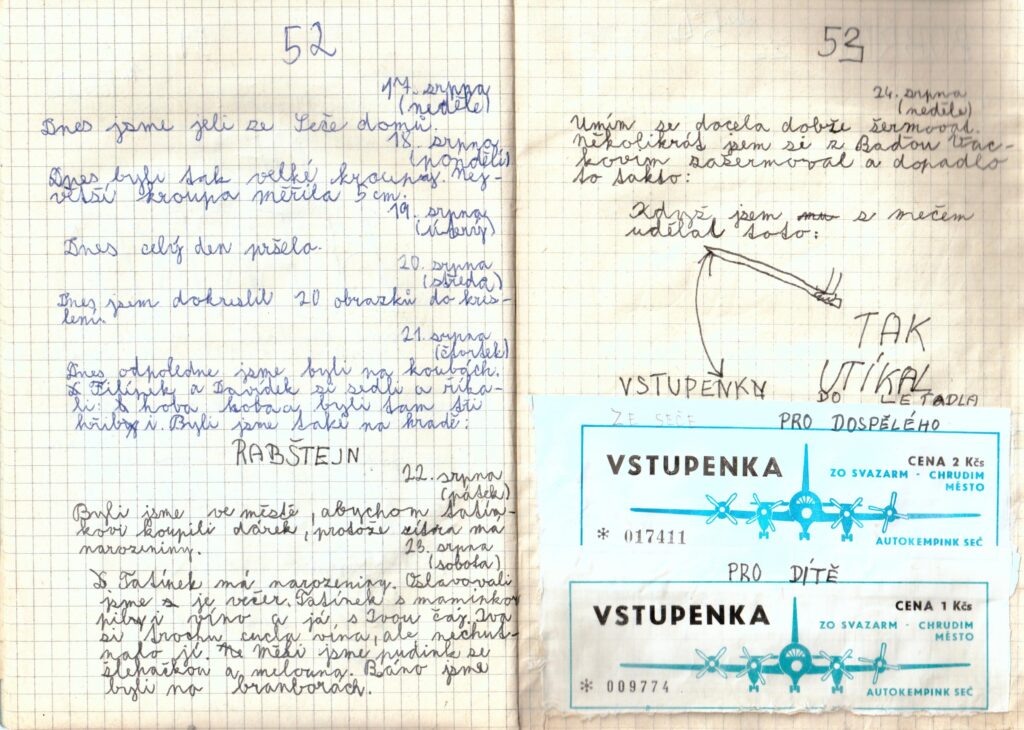 52
17. srpna
(neděle)
Dnes jsme jeli ze Seče domů.
18. srpna
(pondělí)
Dnes byli tak velké kroupy. Nej-
větší kroupa měřila 5 cm.
19. srpna
(úterý)
Dnes celý den pršelo.
20. srpna
(středa)
Dnes jsem dokreslil 20 obrazků do kres-
lení.
21. srpna
(čtvrtek)
Dnes odpoledne jsme byli na houbách.
Filípek a Davídek si sedli a říka-
li: hoba hoba a byli tam tři
hřiby i. Byli jsme také na hradě:
RABŠTEJN
22. srpna
(pátek)
Byli jsme ve městě, abychom tatín-
kovi koupili dárek, protože zítra má
narozeniny.
23. srpna
(sobota)
Tatínek má narozeniny. Oslavovali
jsme je večer. Tatínek s maminkou
pili víno a já s Ivou čaj. Iva
si trochu cucla vína, ale nechut-
nalo jí. Měli jsme pudink se
šlehačkou a melouna. Ráno jsme
byli na bramborách.
53
24. srpna
(neděle)
Umím se docela dobře šermovat.
Několikrát jsem si z Baďou
zašermoval a dopadlo
to takto:
Když jsem s mečem
udělal toto:
TAK
UTÍKAL
DO LETADLA
VSTUPENKY
ZE SEČE
PRO DOSPĚLÉHO
VSTUPENKA
CENA 2 Kčs
ZO SVAZARM - CHRUDIM
MĚSTO
* 017411
AUTOKEMPINK SEČ
PRO DÍTĚ
VSTUPENKA
CENA 1 Kčs
ZO SVAZARM - CHRUDIM
MĚSTO
* 009774
AUTOKEMPINK SEČ